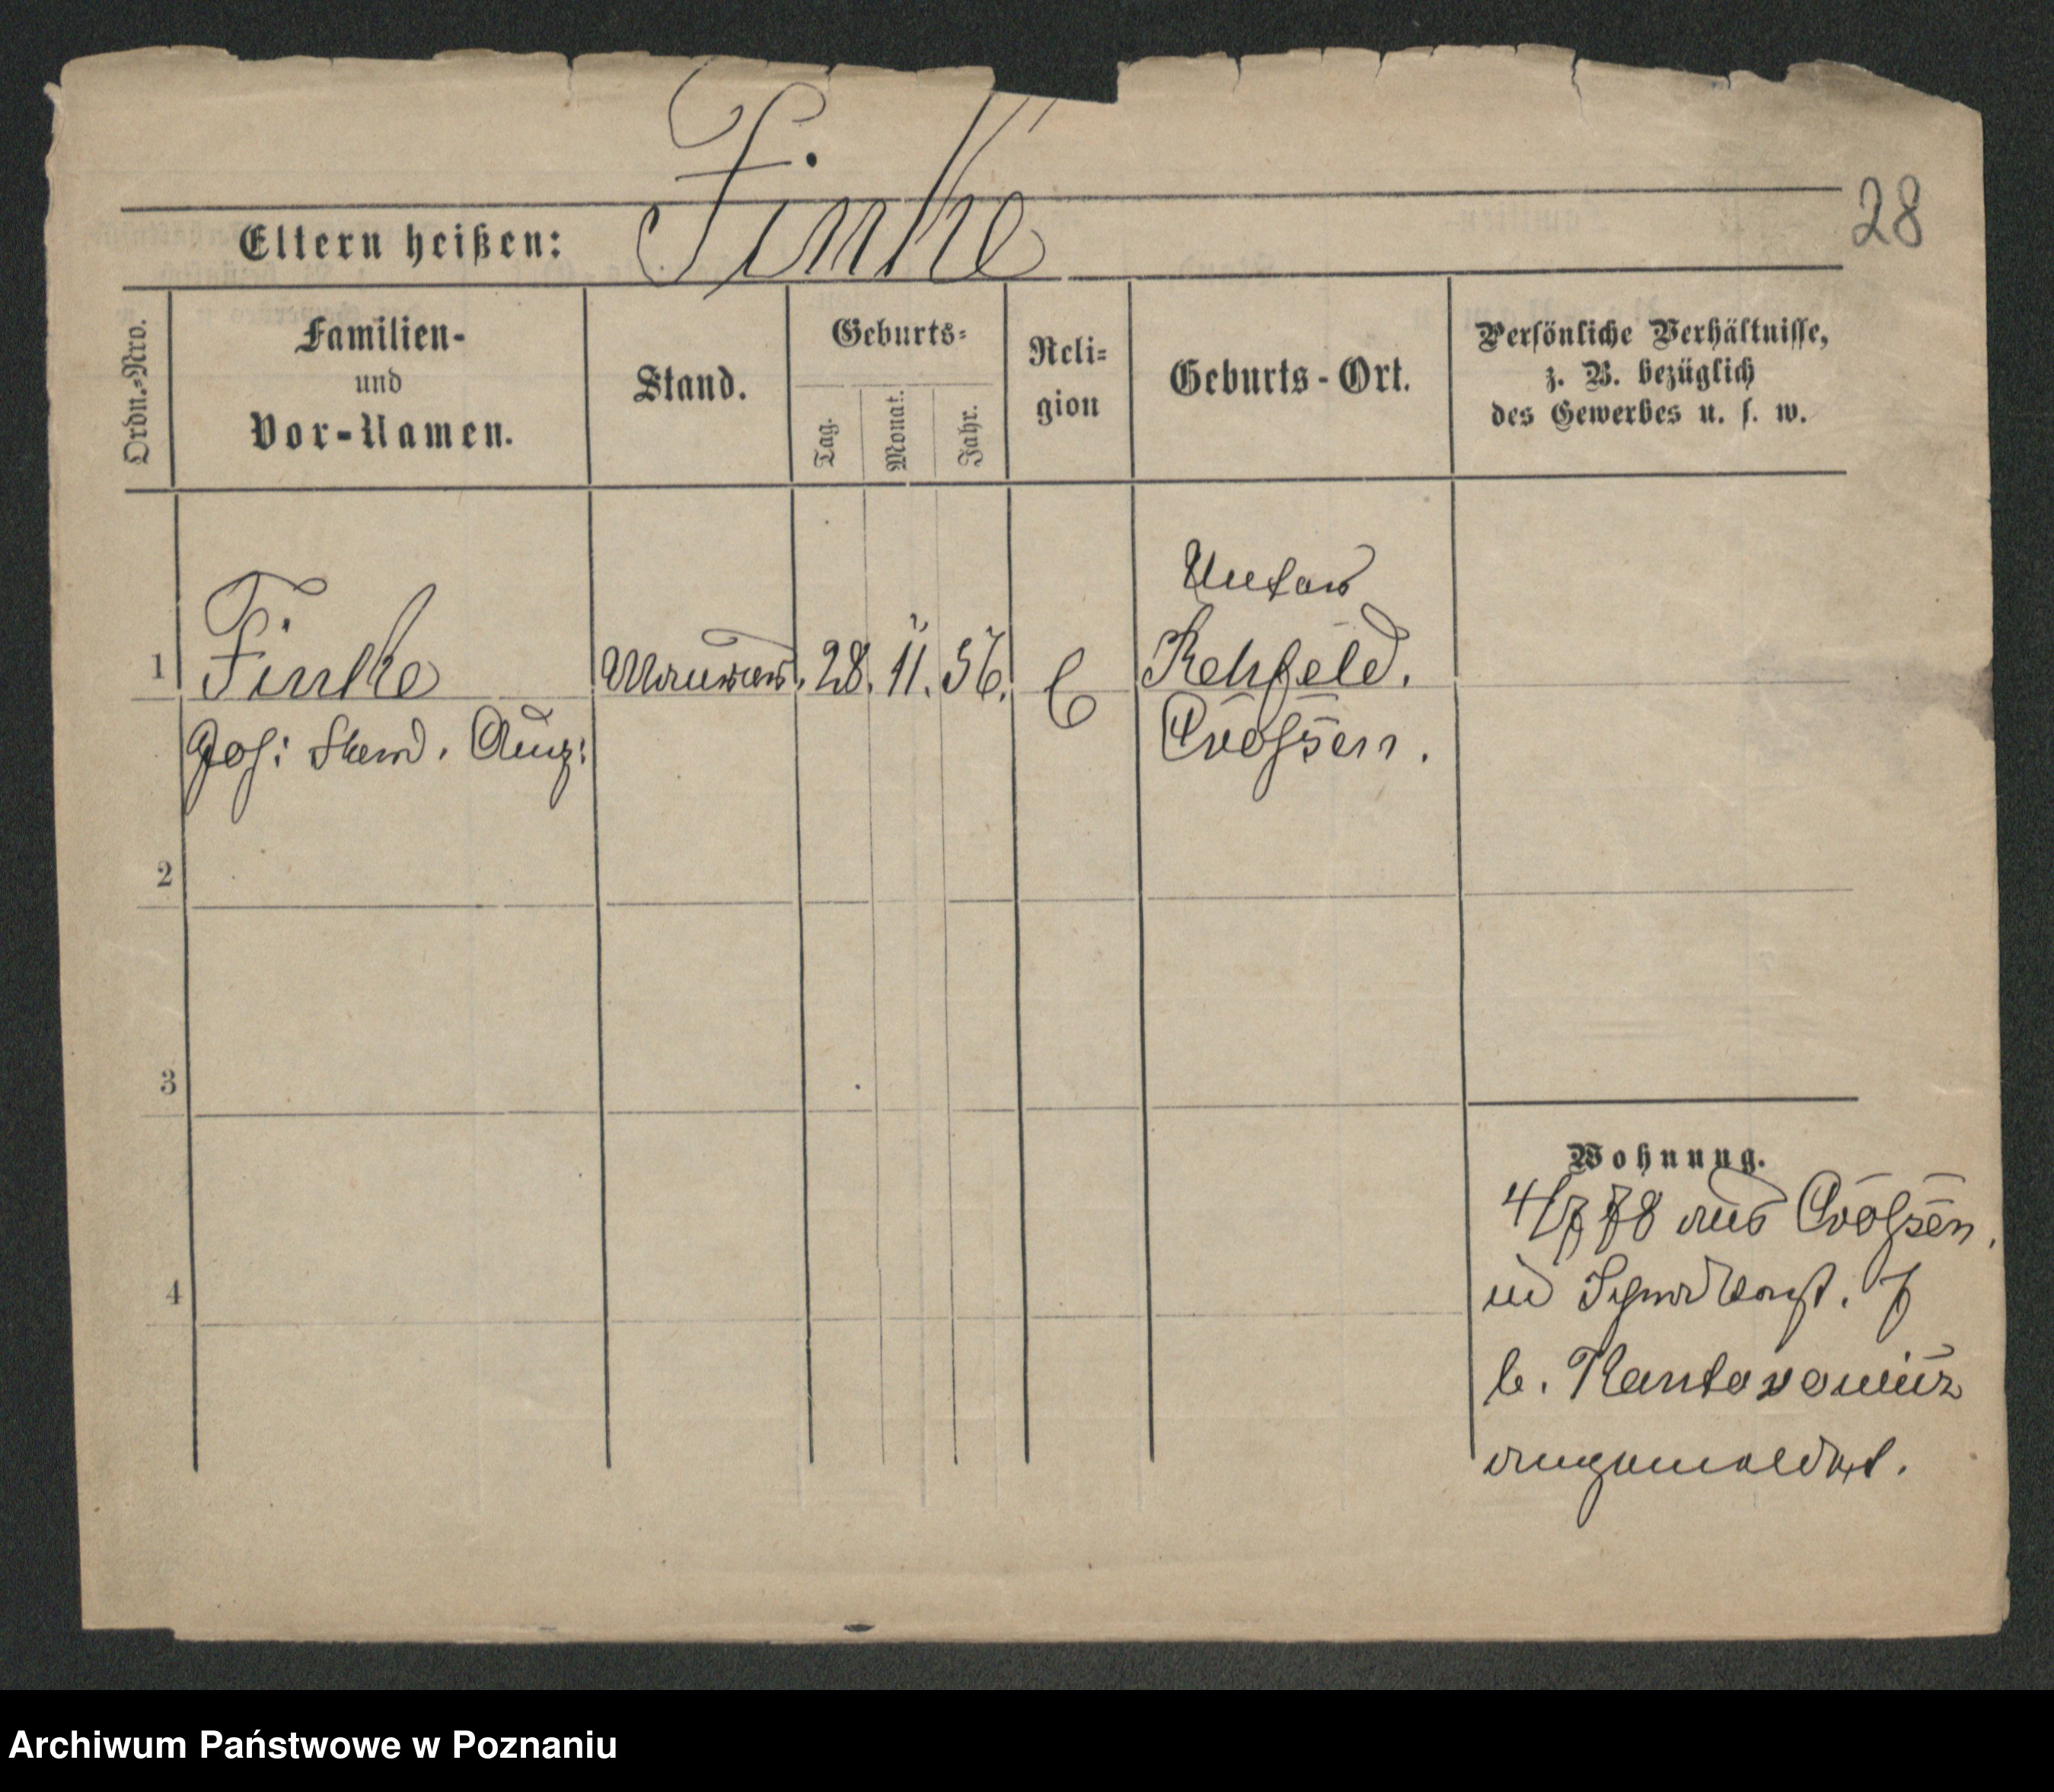 28
Finke
Eltern heißen:
Ordn.-Nro.
Familien-
und
Vor-Namen.
Stand.
Geburts-
Tag.
Monat.
Jahr.
Reli-
gion
Geburts-Ort.
Persönliche Verhältnisse,
z. B. bezüglich
des Gewerbes u. s. w.
Unter
1 Finke Maurer. 28. 11. 56. Rehfeld.
Joh: Aug: Crossen.
2
3
4
Wohnung.
4/7 78 aus Crossen,
b.
angemeldet.
Archiwum Państwowe w Poznaniu